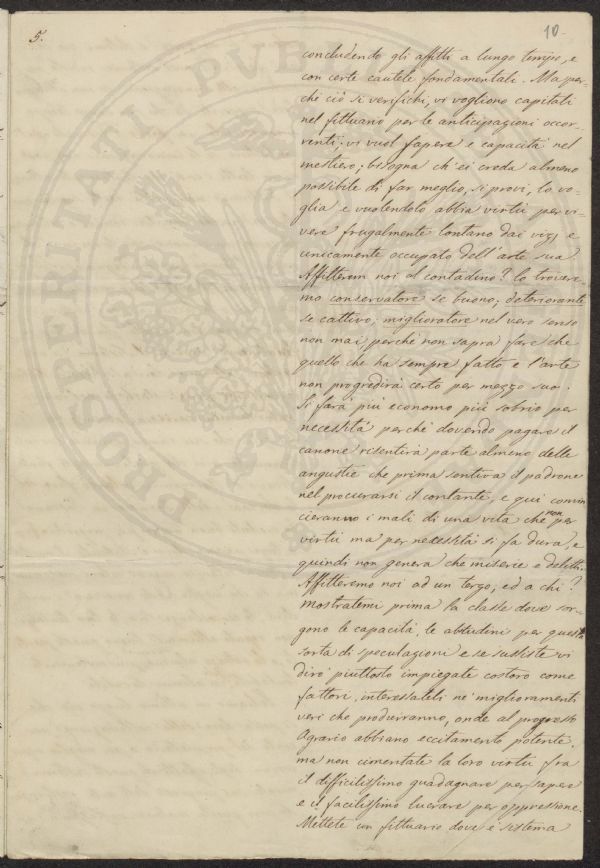 5.
10.
PROSPERITATI PUBL
concludendo gli affitti a lungo tempo, e
con certe cautele fondamentali. Ma per-
chè ciò si verifichi, vi vogliono capitali
nel fittuario per le anticipazioni occor-
renti; vi vuol sapere e capacità nel
mestiere; bisogna ch'ei creda almeno
possibile di far meglio, si provi, lo vo-
glia e volendolo abbia virtù per vi-
vere frugalmente lontano dai vizj e
unicamente occupato dell'arte sua.
Affitterem noi al contadino? lo trovere-
mo conservatore se buono; deteriorante
se cattivo; miglioratore nel vero senso
non mai, perchè non saprà fare che
quello che ha sempre fatto e l'arte
non progredirà certo per mezzo suo.
Si farà più economo più sobrio per
necessità perchè dovendo pagare il
canone risentirà parte almeno delle
angustie che prima sentiva il padrone
nel procurarsi il contante, e qui comin
cieranno i mali di una vita che non per
virtù ma per necessità si fa dura, e
quindi non genera che miserie e delitti.
Affitteremo noi ad un terzo, ed a chi?
Mostratemi prima la classe dove sor-
gono le capacità, le abitudini per questa
sorta di speculazioni e se sussiste vi
dirò piuttosto impiegate costoro come
fattori, interessateli nè miglioramenti
veri che produrranno, onde al progresso
Agrario abbiano eccitamento potente,
ma non cimentate la loro virtù fra
il difficilissimo guadagnare per sapere
e il facilissimo lucrare per oppressione.
Mettete un fittuario dove è sistema